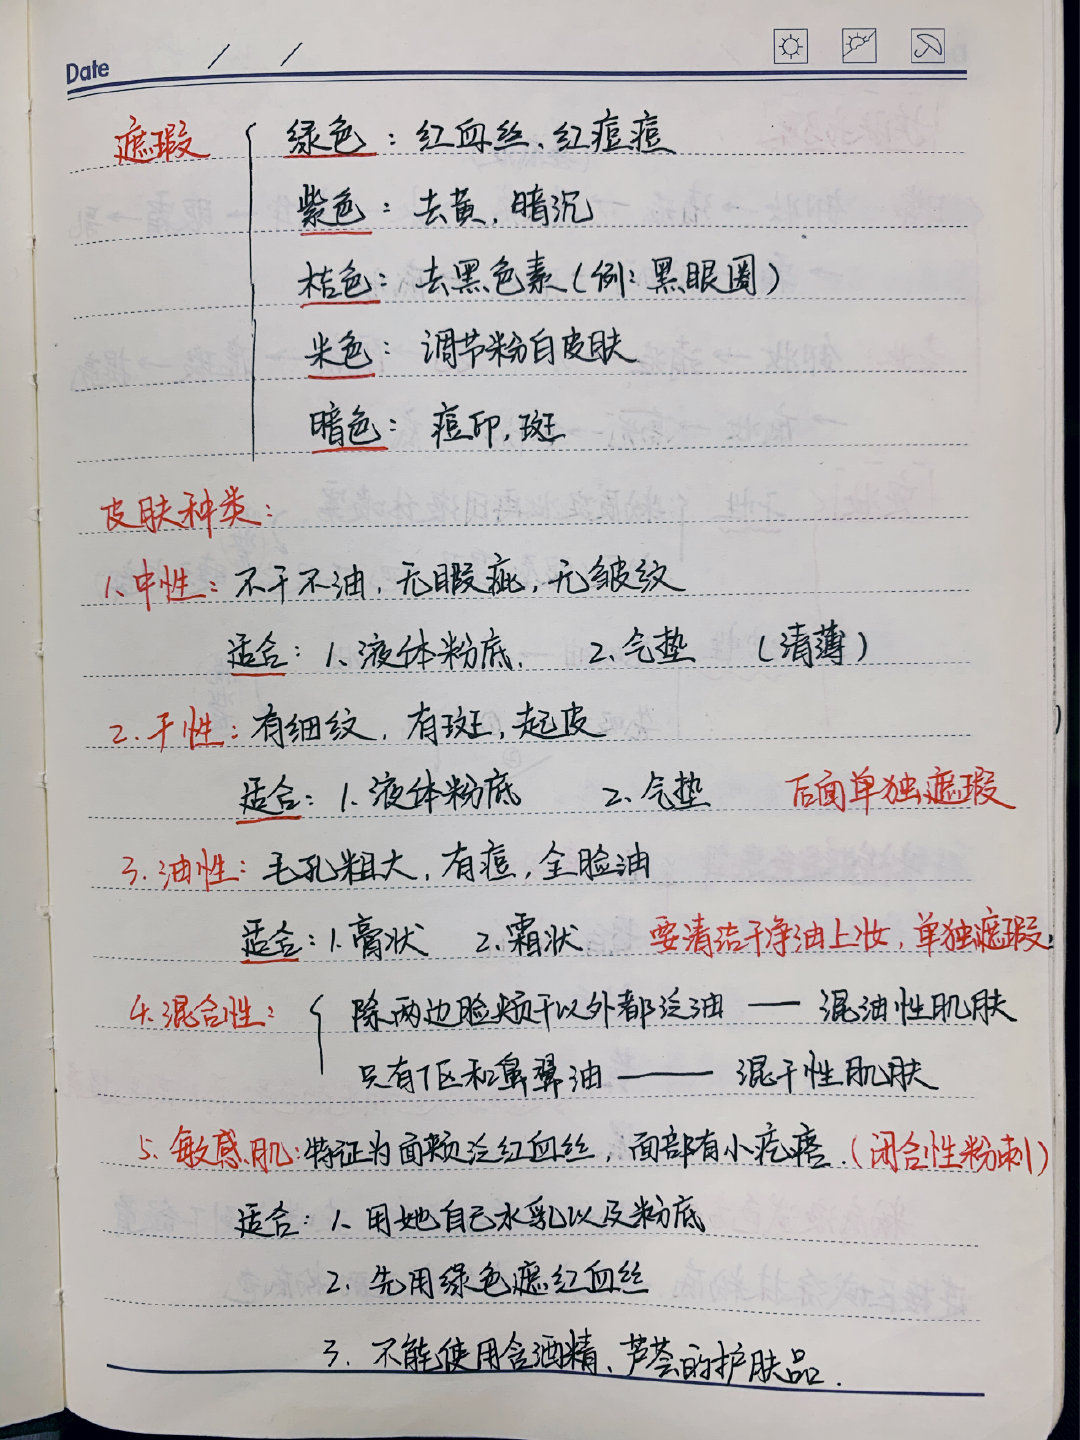 Date / /
遮瑕 绿色：红血丝、红痘痘
紫色：去黄，暗沉
桔色：去黑色素（例：黑眼圈）
米色：调节粉白皮肤
暗色：痘印，斑
皮肤种类：
1、中性：不干不油，无暇疵，无皱纹
适合：1、液体粉底． 2、气垫 （清薄）
2．干性：有细纹，有斑，起皮
适合：1、液体粉底 2、气垫 后面单独遮瑕
3．油性：毛孔粗大，有痘，全脸油
适合：1、膏状 2、霜状 要清洁干净油上妆，单独遮瑕，
4．混合性： 除两边脸颊干以外都泛油 —— 混油性肌肤
只有T区和鼻翼油 —— 混干性肌肤
5．敏感肌：特证为面颊泛红血丝，面部有小疙瘩．（闭合性粉刺）
适合：1、用她自己水乳以及粉底
2、先用绿色遮红血丝
3．不能使用含酒精、芦荟的护肤品．